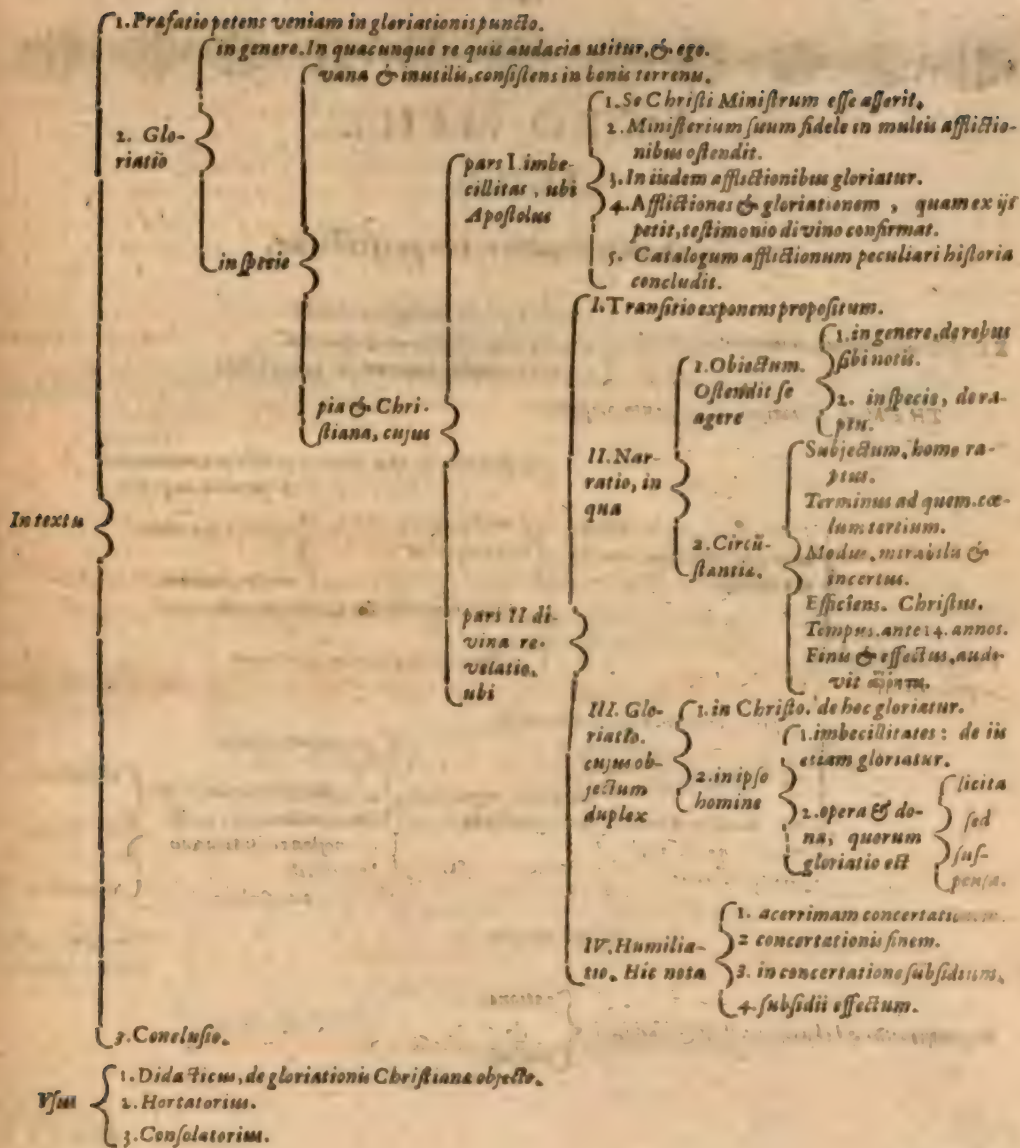 1. Præfatio petens veniam in gloriationis puncto.
in genere. In quacunque re quis audacia utitur, & ego.
2. Glo-
riatio
vana & inutilis, consistens in bonis terrenis.
in specie
pia & Chri-
stiana, cujus
pars I. imbe-
cillitas, ubi
Apostolus
1. Se Christi Ministrum esse asserit.
2. Ministerium suum fidele in multis afflictio-
nibus ostendit.
3. In iisdem afflictionibus gloriatur.
4. Afflictiones & gloriationem, quam ex ijs
petit, testimonio divino confirmat.
5. Catalogum afflictionum peculiari historia
concludit.
In textu
pars II di-
vina re-
velatio,
ubi
I. Transitio exponens propositum.
II. Nar-
ratio, in
qua
1. Obiectum.
Ostendit se
agere
1. in genere, de rebus
sibi notis.
2. in specie, de ra-
ptu.
2. Circū-
stantia.
Subjectum, homo ra-
ptus.
Terminus ad quem. cœ-
lum tertium.
Modus, mirabilis &
incertus.
Efficiens. Christus.
Tempus. ante 14. annos.
Finis & effectus, audi-
vit
III. Glo-
riatio.
cujus ob-
jectum
duplex
1. in Christo. de hoc gloriatur.
2. in ipso
homine
1. imbecillitates: de iis
etiam gloriatur.
2. opera & do-
na, quorum
gloriatio est
licita
sed
sus-
pensa.
IV. Humilia-
tio. Hic nota
1. acerrimam
2 concertationis finem.
3. in concertatione subsidium.
4. subsidii effectum.
3. Conclusio.
Vsus
1. Didacticus, de gloriationis Christiana objecto.
2. Hortatorius.
3. Consolatorius.